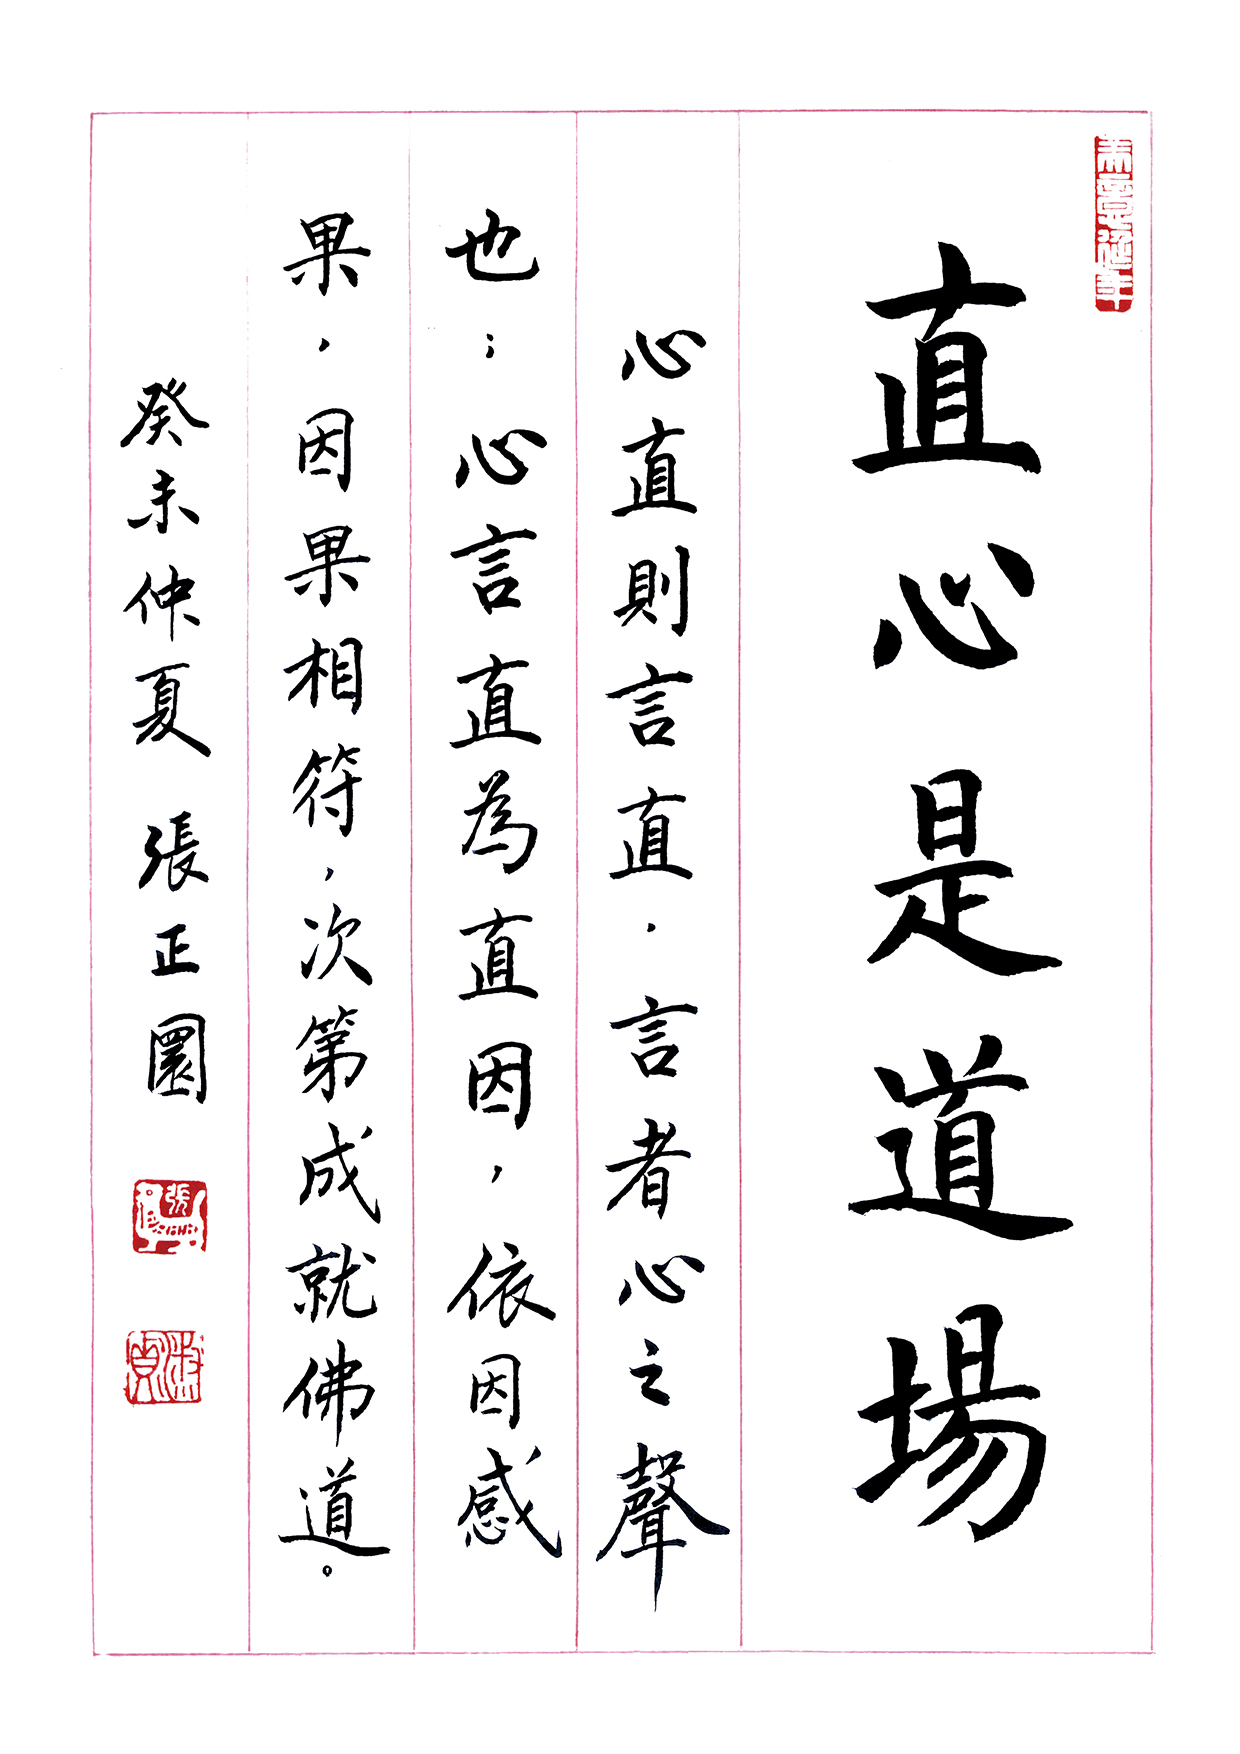 直心是道場
心直則言直．言者心之聲
也；心言直為直因，依因感
果，因果相符，次第成就佛道。
癸未仲夏 張正圜
張